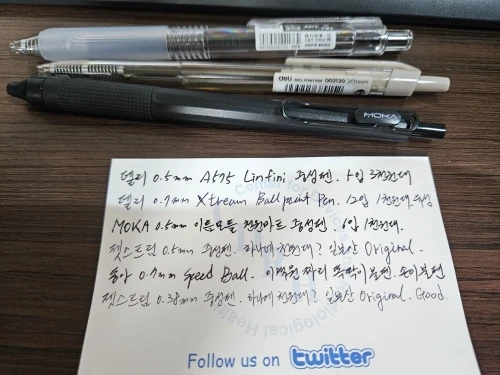 deli
MOKA
델리 0.5mm A575 Linfini 중성펜. 5입 3천원대
델리 0.7mm Xtream Ballpoint Pen. 12입 1천원대.
MOKA 0.5mm 이름모를 천원마트 중성펜. 6입 1천원대.
젯스트림 0.5mm 중성펜. 하나에 천원대? 일본산 Original.
동아 0.7mm Speed Ball. 이백원 짜리 똑딱이 볼펜.
젯스트림 0.38mm 중성펜. 하나에 천원대? 일본산 Original. Good.
Follow us on twitter